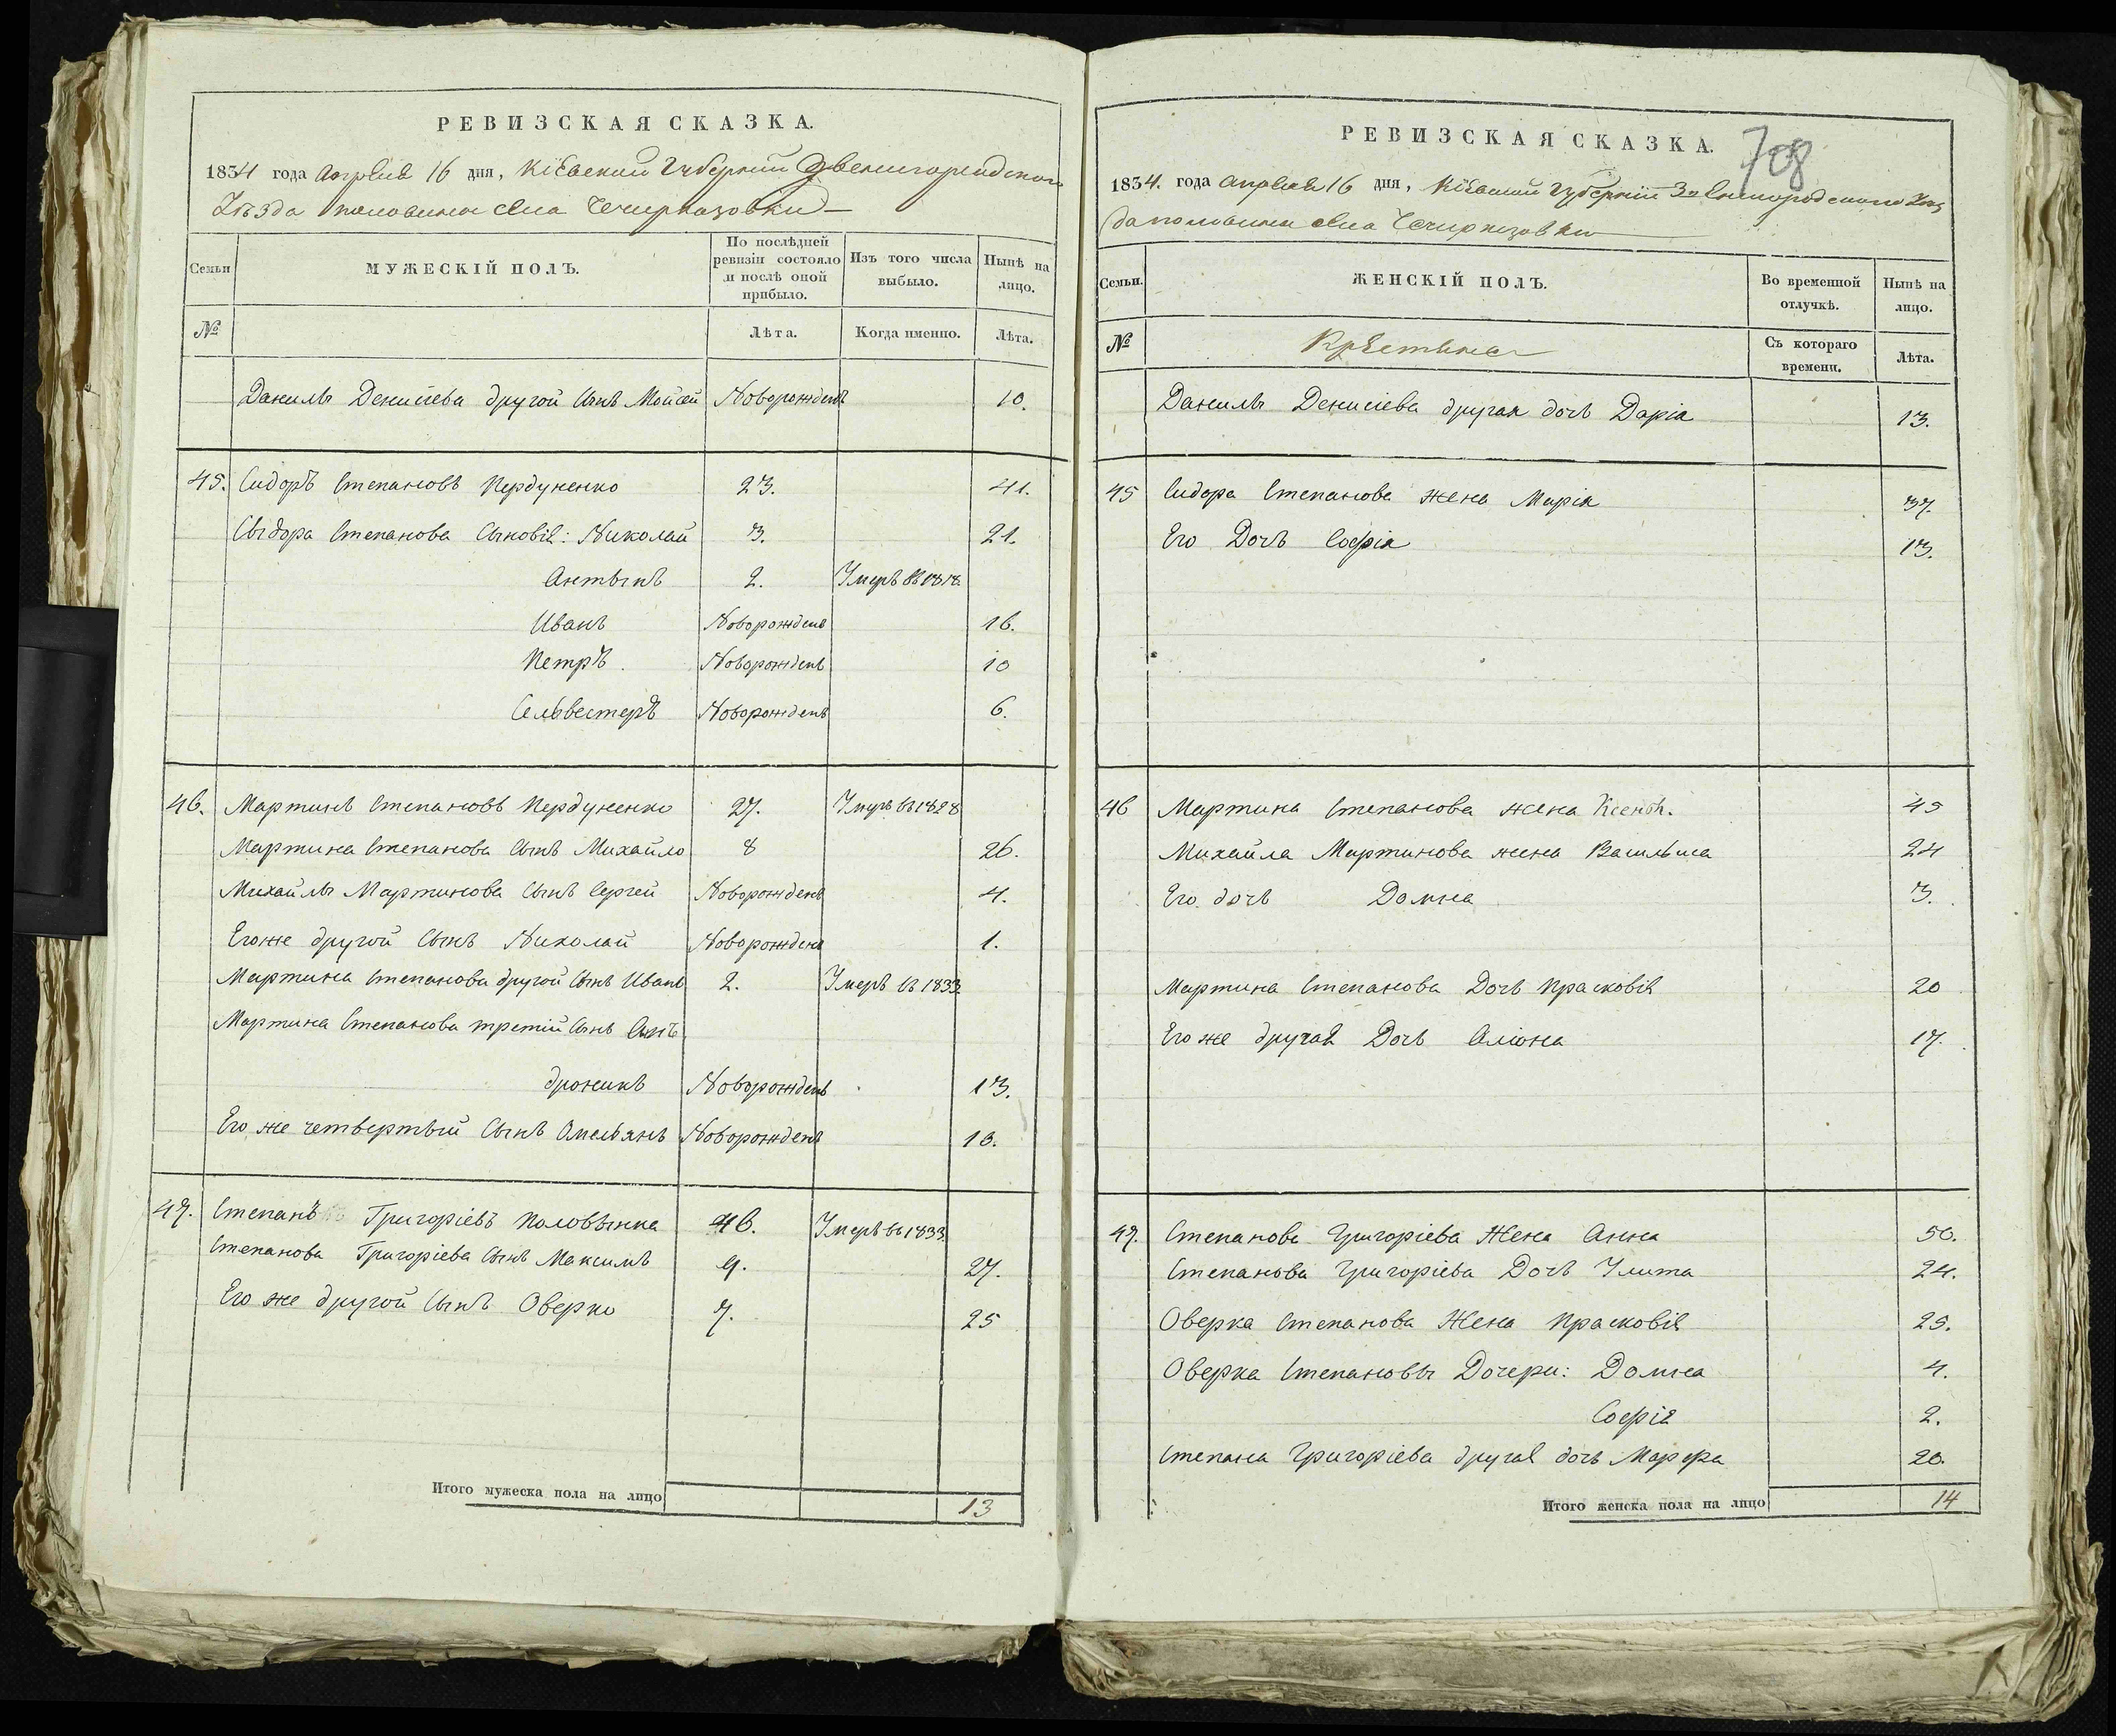 РЕВИЗСКАЯ СКАЗКА.
1834 года апреля 16 дня, Кіевской Губерніи Звенигородского
Уѣзда половины села Чечирказовки
Семьи
МУЖЕСКІЙ ПОЛЪ.
По послѣдней ревизіи состояло и послѣ оной прибыло.
Изъ того числа выбыло.
Нынѣ на лицо.
№
Лѣта.
Когда именно.
Лѣта.
Данилы Денисіева другой Сынъ Мойсей Новорожденъ 10.
45. Сидоръ Степановъ Пердуненко 23. 41.
Сыдора Степанова Сыновія: Николай 3. 21.
Антынъ 2. Умеръ въ 1818.
Иванъ Новорожденъ 16.
Петръ. Новорожденъ 10
Сельвестеръ Новорожденъ 6.
46. Мартинъ Степановъ Пердуненко 27. Умеръ въ 1828
Мартина Степанова Сынъ Михайло 8 26.
Михайлы Мартинова Сынъ Сергей Новорожденъ 4.
Егоже другой Сынъ Николай Новорожденъ 1.
Мартина Степанова другой Сынъ Иванъ 2. Умеръ въ 1833
Мартина Степанова третій Сынъ Анъ
дроникъ Новорожденъ 13.
Его же четвертый Сынъ Омельянъ Новорожденъ 10.
47. Степанъ Григоріевъ Половынка 46. Умеръ въ 1833.
Степанова Григоріева Сынъ Максимъ 9. 27.
Его же другой Сынъ Оверко 7. 25
Итого мужеска пола на лицо 13
РЕВИЗСКАЯ СКАЗКА.
708
1834. года апреля 16 дня, Кіевской Губерніи Звенигородского Уѣз
да половины села Чечирказовки
Семьи.
ЖЕНСКІЙ ПОЛЪ.
Во временной отлучкѣ.
Нынѣ на лицо.
№
Крѣстьяне
Съ котораго времени.
Лѣта.
Данилы Денисіева другая дочь Дарія 13.
45 Сидора Степанова жена Марія 37.
Его Дочь Софія 13.
46 Мартина Степанова жена Ксенія. 45
Михайла Мартинова жена Васильиса 24
Его дочь Домна 3.
Мартина Степанова Дочь Прасковія 20
Его же другая Дочь Алюна 17.
47. Степанова Григоріева Жена Анна 50.
Степанова Григоріева Дочь Улита 24.
Оверка Степанова Жена Прасковія 25.
Оверка Степановы Дочери: Домна 4.
Софія 2.
Степана Григоріева другая дочь Марфа 20.
Итого женска пола на лицо 14